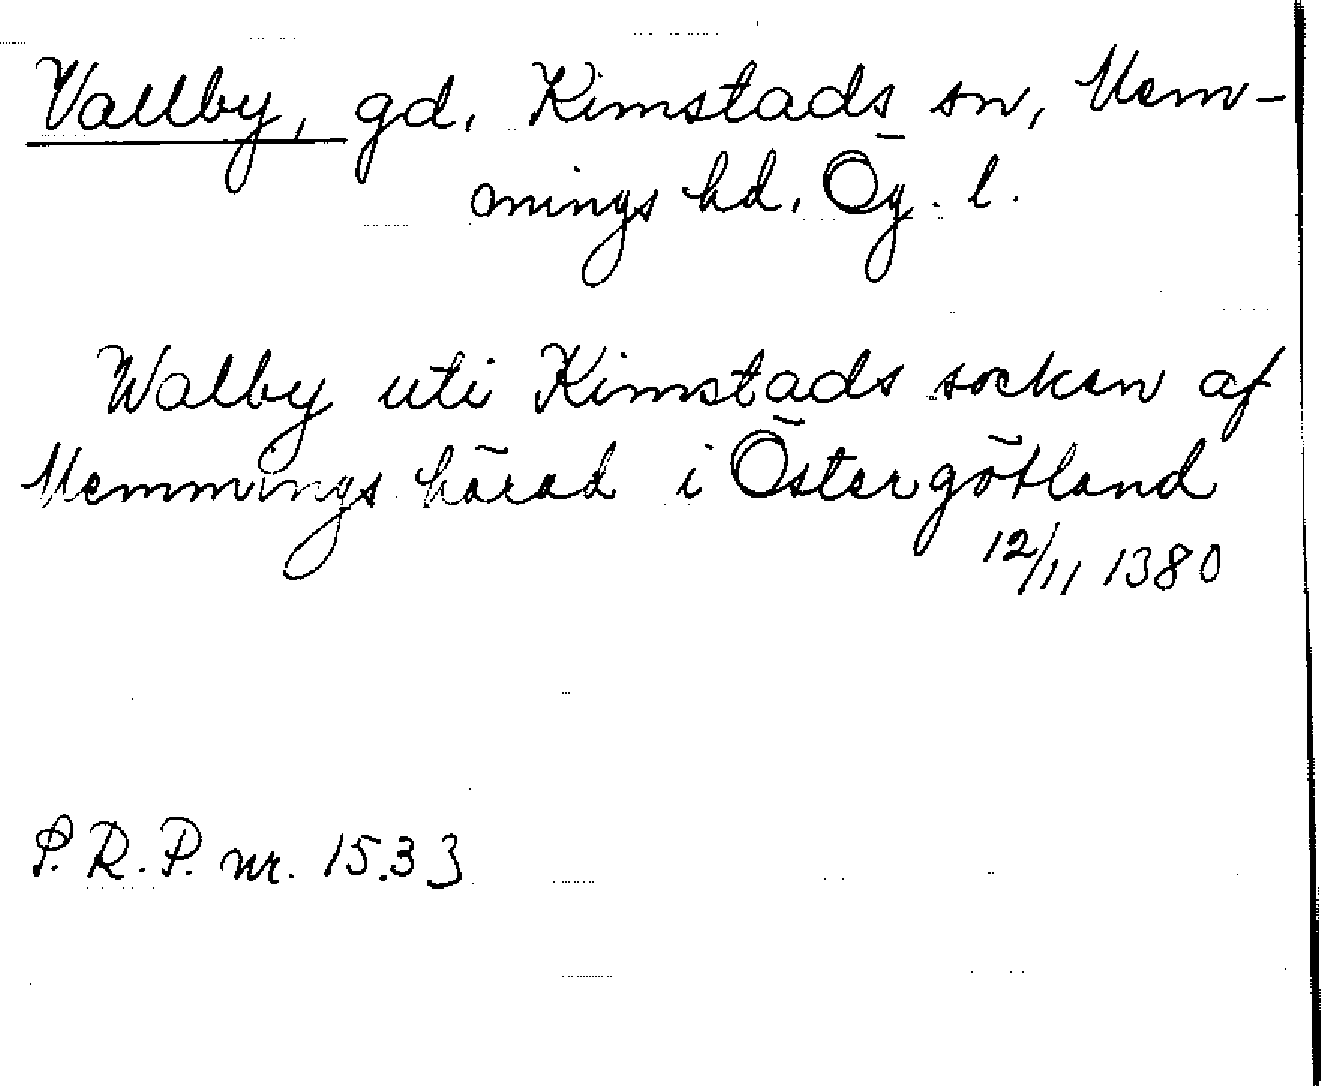 Vallby, gd, Kimstads sn, Mem-
mings hd. Ög. l.
Walby uti Kimstads socken af
Memmings härad i Östergötland
12/11 1380
P. R. P. nr. 1533